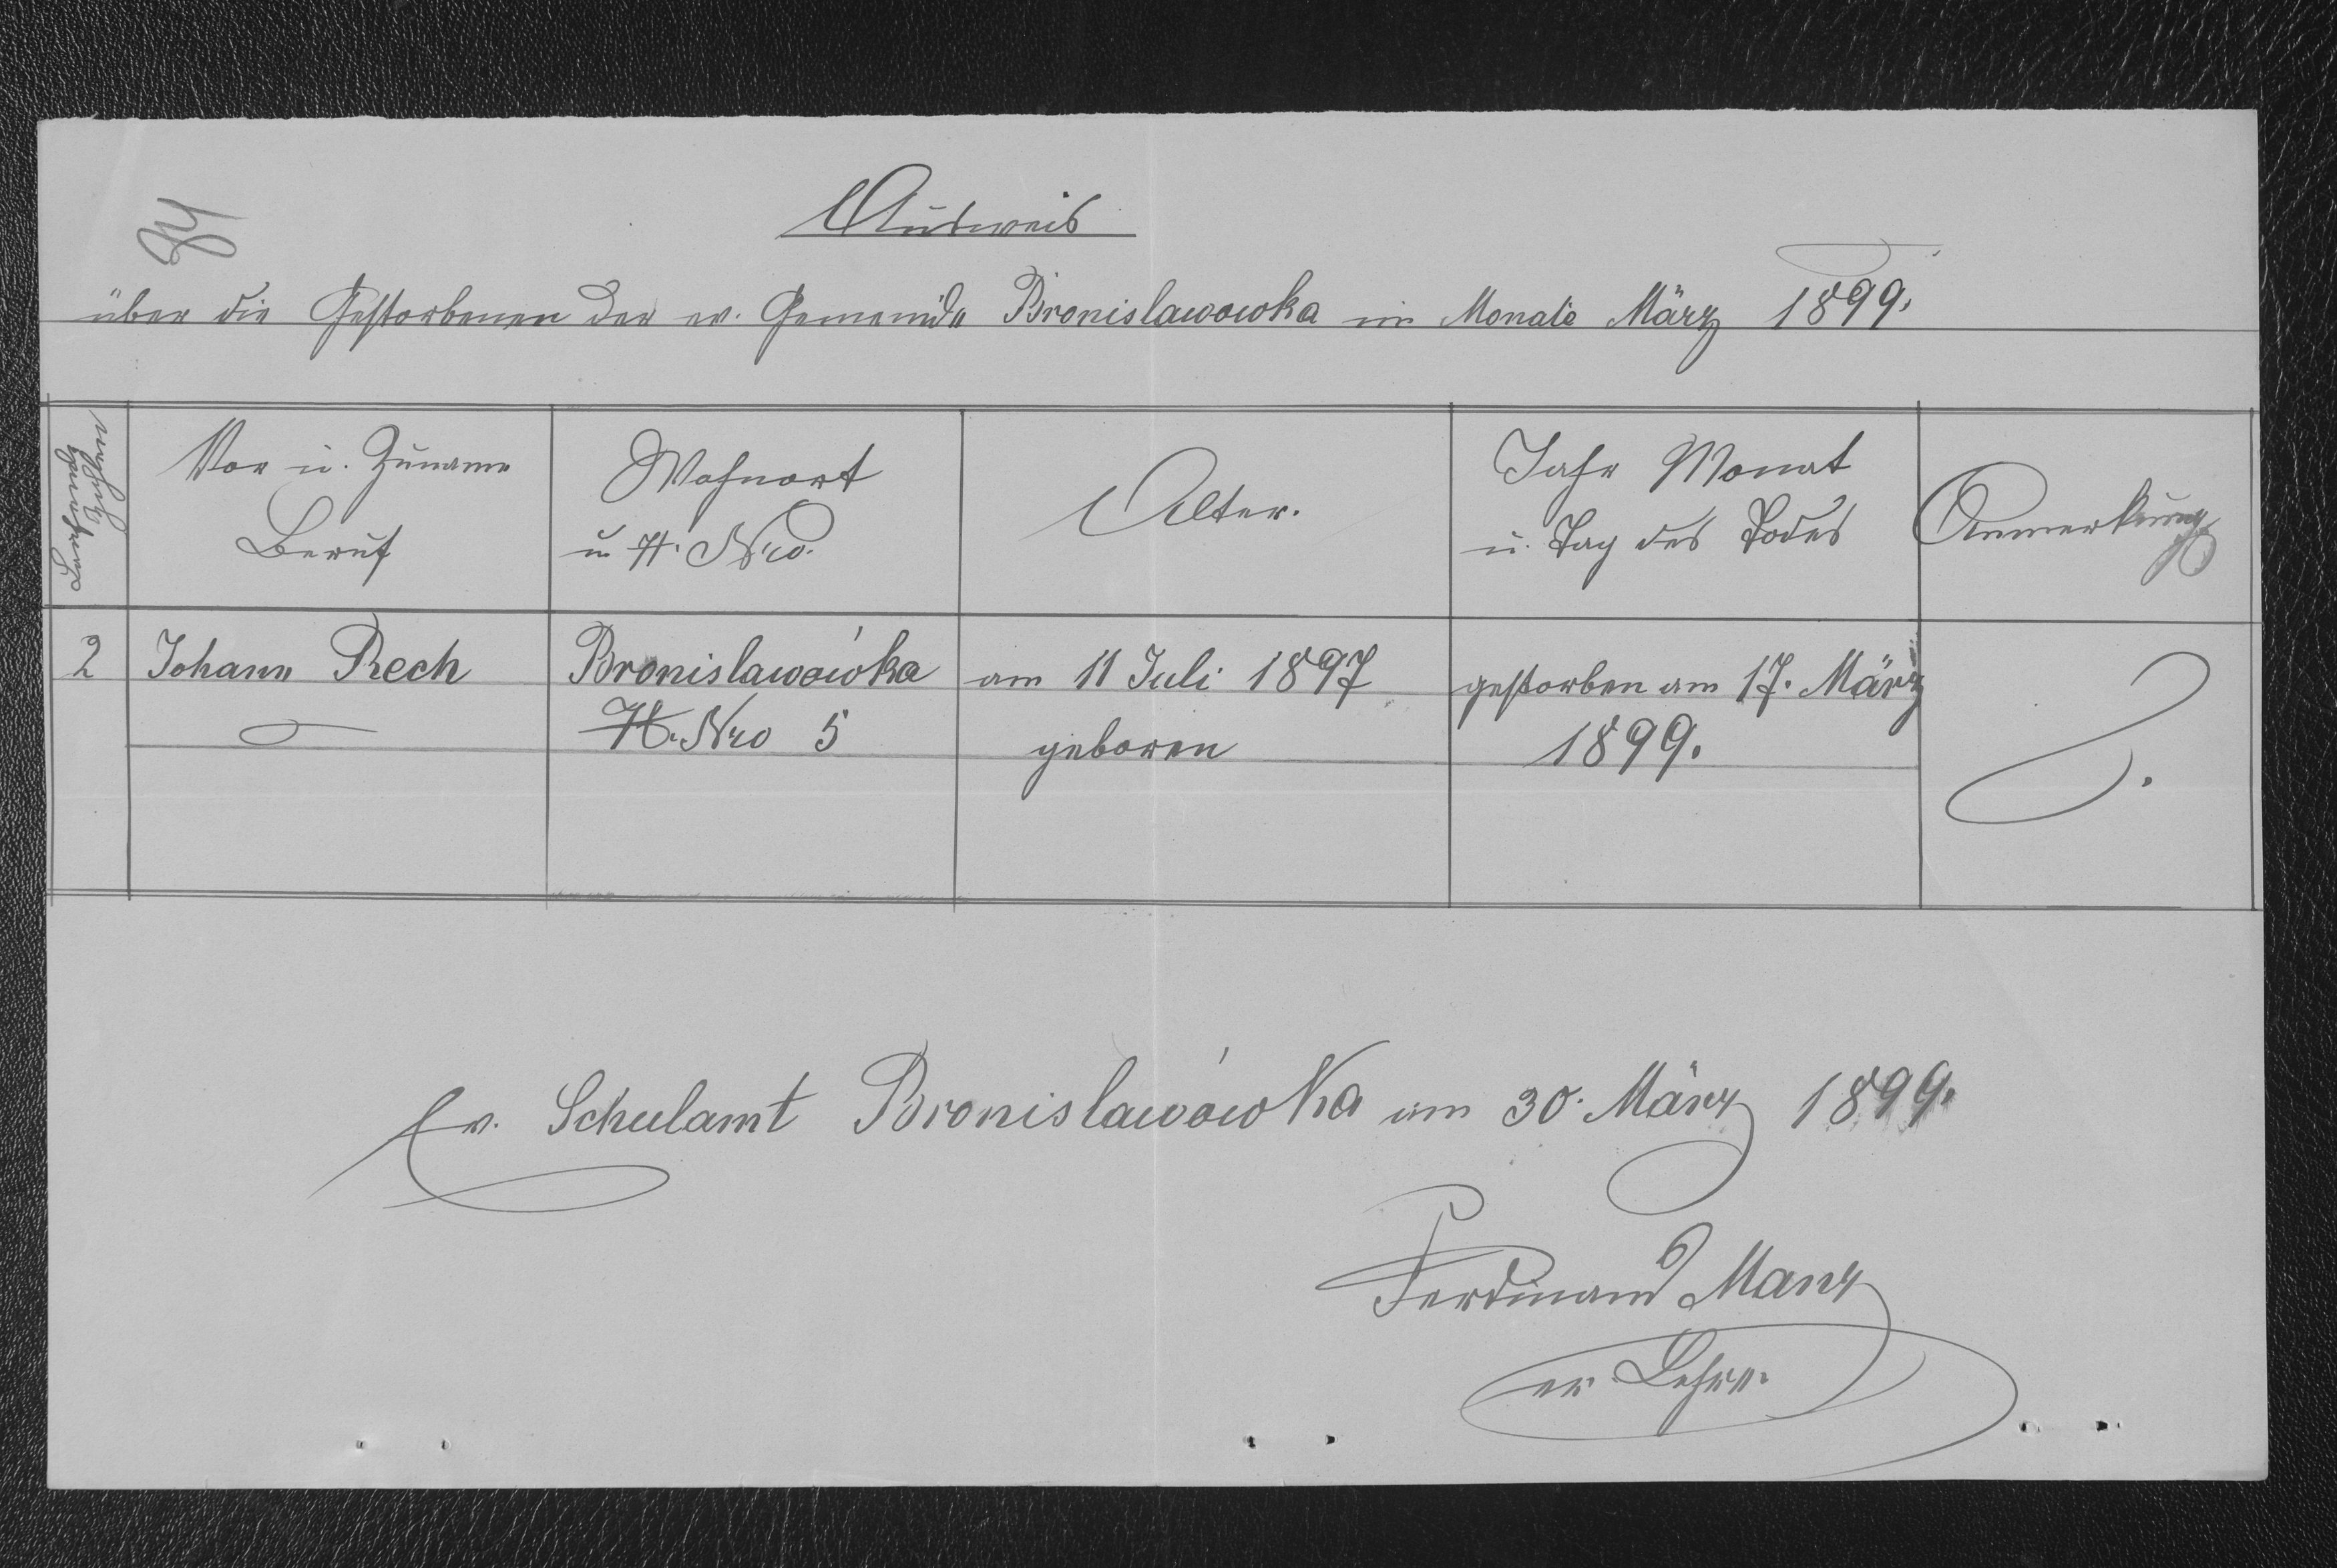 Ausweis
über die Gestorbenen der ev. Gemeinde Bronislawowka im Monate März 1899.
Vor u. Zuname
Beruf
Wohnort
u. H. Nro.
Alter.
Jahr Monat
u. Tag des Todes
Anmerkung
2
Johann Rech
Bronislawówka
H. Nro 5
am 11 Juli 1897
geboren
gestorben am 17. März
1899.
Ev. Schulamt Bronislawówka am 30. März 1899.
Ferdinand Manz
ev. Lehrer.